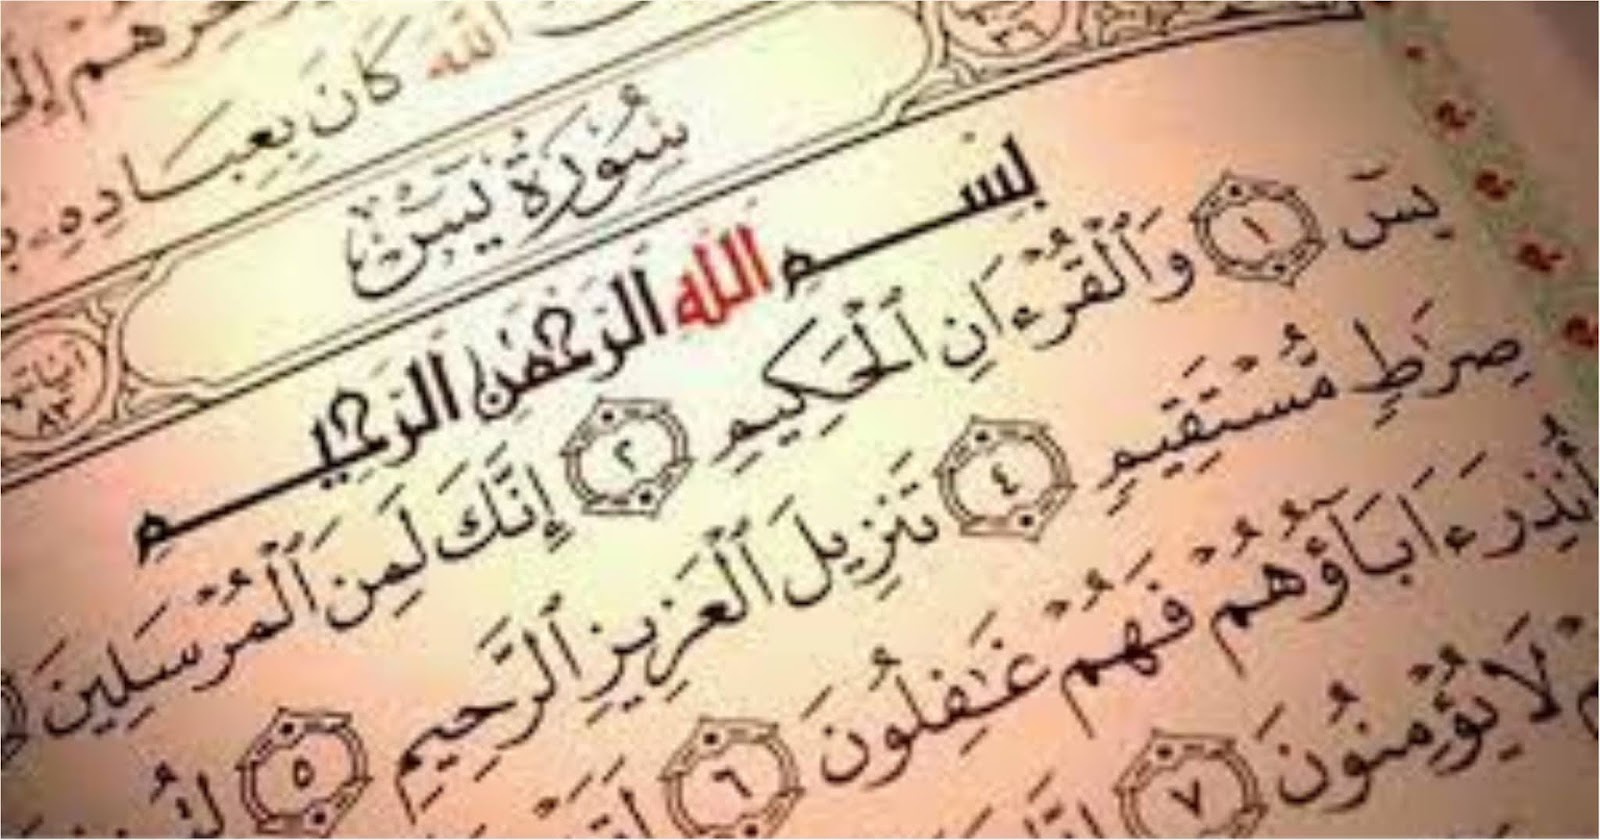 هِمْ إِلَى
ٱللَّهَ كَانَ بِعِبَادِهِۦ
٣٦
سُورَةُ يسٓ
ءَايَاتُهَا ٨٣
بِسْمِ ٱللَّهِ ٱلرَّحْمَٰنِ ٱلرَّحِيمِ
يسٓ ١ وَٱلْقُرْءَانِ ٱلْحَكِيمِ ٢ إِنَّكَ لَمِنَ ٱلْمُرْسَلِينَ
صِرَٰطٍ مُّسْتَقِيمٍ ٤ تَنزِيلَ ٱلْعَزِيزِ ٱلرَّحِيمِ ٥
أُنذِرَ ءَابَآؤُهُمْ فَهُمْ غَٰفِلُونَ ٦
لَا يُؤْمِنُونَ ٧